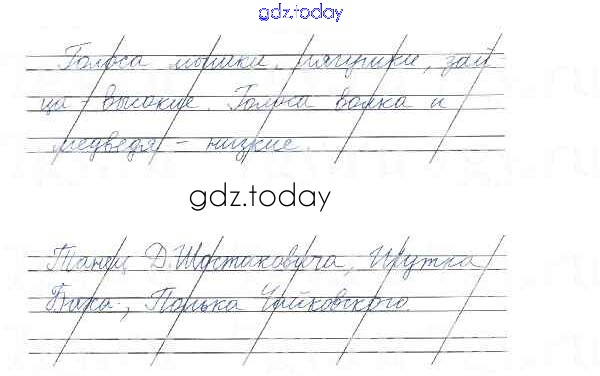 gdz.today
Голоса мышки, лягушки, зай-
ца - высокие. Голоса волка и
медведя - низкие.
gdz.today
Танец Д.Шостаковича, Шутка
Баха, Полька Чайковского.